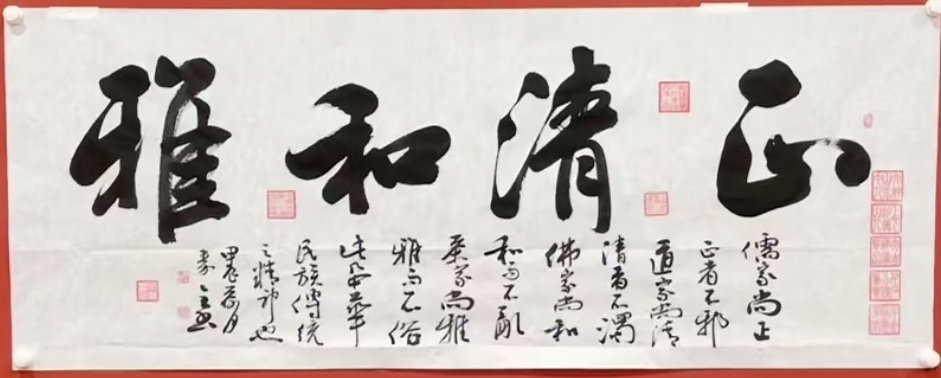 正清和雅
儒家尚正
正者不邪
道家尚清
清者不濁
佛家尚和
和而不亂
茶家尚雅
雅而不俗
此乃中華
民族傳統
之精神也
甲辰 月